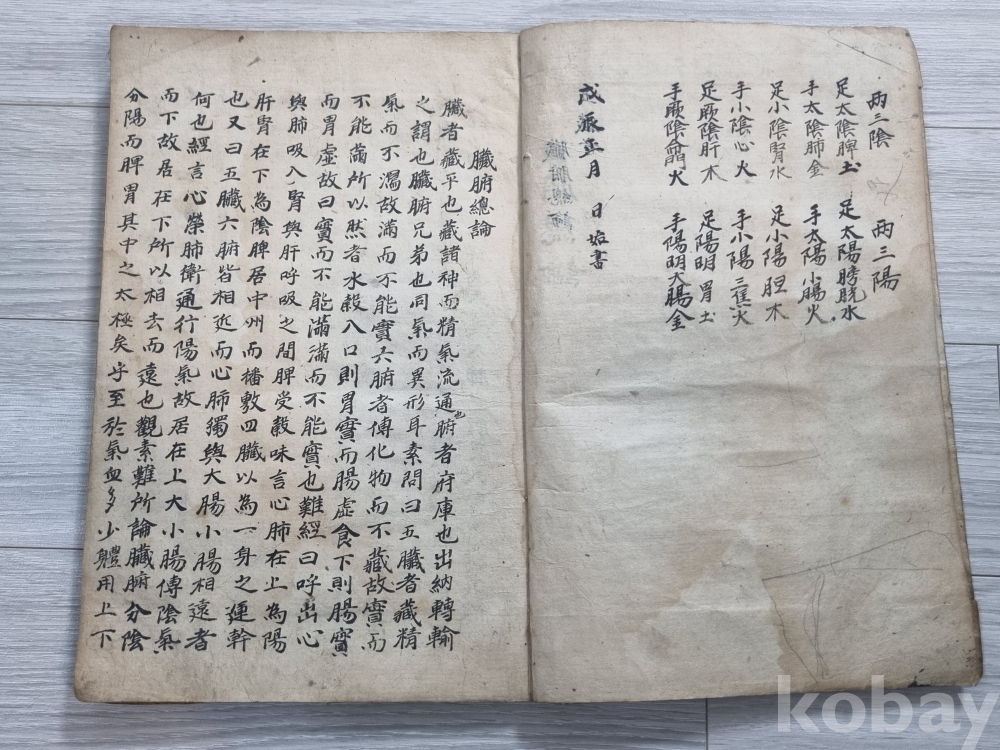 两三陰 两三陽
足太陰脾土 足太陽膀胱水
手太陰肺金 手太陽小腸火
足小陰腎水 足小陽胆木
手小陰心火 手小陽三焦火
足厥陰肝木 足陽明胃土
手厥陰火 手陽明大腸金
戊辰正月 日始書
臟腑總論
臟者藏乎也藏諸神而精氣流通也腑者府庫也出納轉輸
之謂也臟腑兄弟也同氣而異形耳素問曰五臟者藏精
氣而不故滿而不能實六腑者傳化物而不藏故實而
不能滿所以然者水穀入口則胃實而腸虛食下則腸實
而胃虛故曰實而不能滿滿而不能實也難經曰呼出心
與肺吸入腎與肝呼吸之間脾受穀味言心肺在上為陽
肝腎在下為陰脾居中州而播敷四臟以為一身之運幹
也又曰五臟六腑皆相近而心肺獨與大腸小腸相遠者
何也經言心榮肺衛通行陽氣故居在上大小腸傳陰氣
而下故居在下所以相去而遠也觀素難所論臟腑分陰
分陽而脾胃其中之太極矣乎至於氣血多少體用上下
kobay